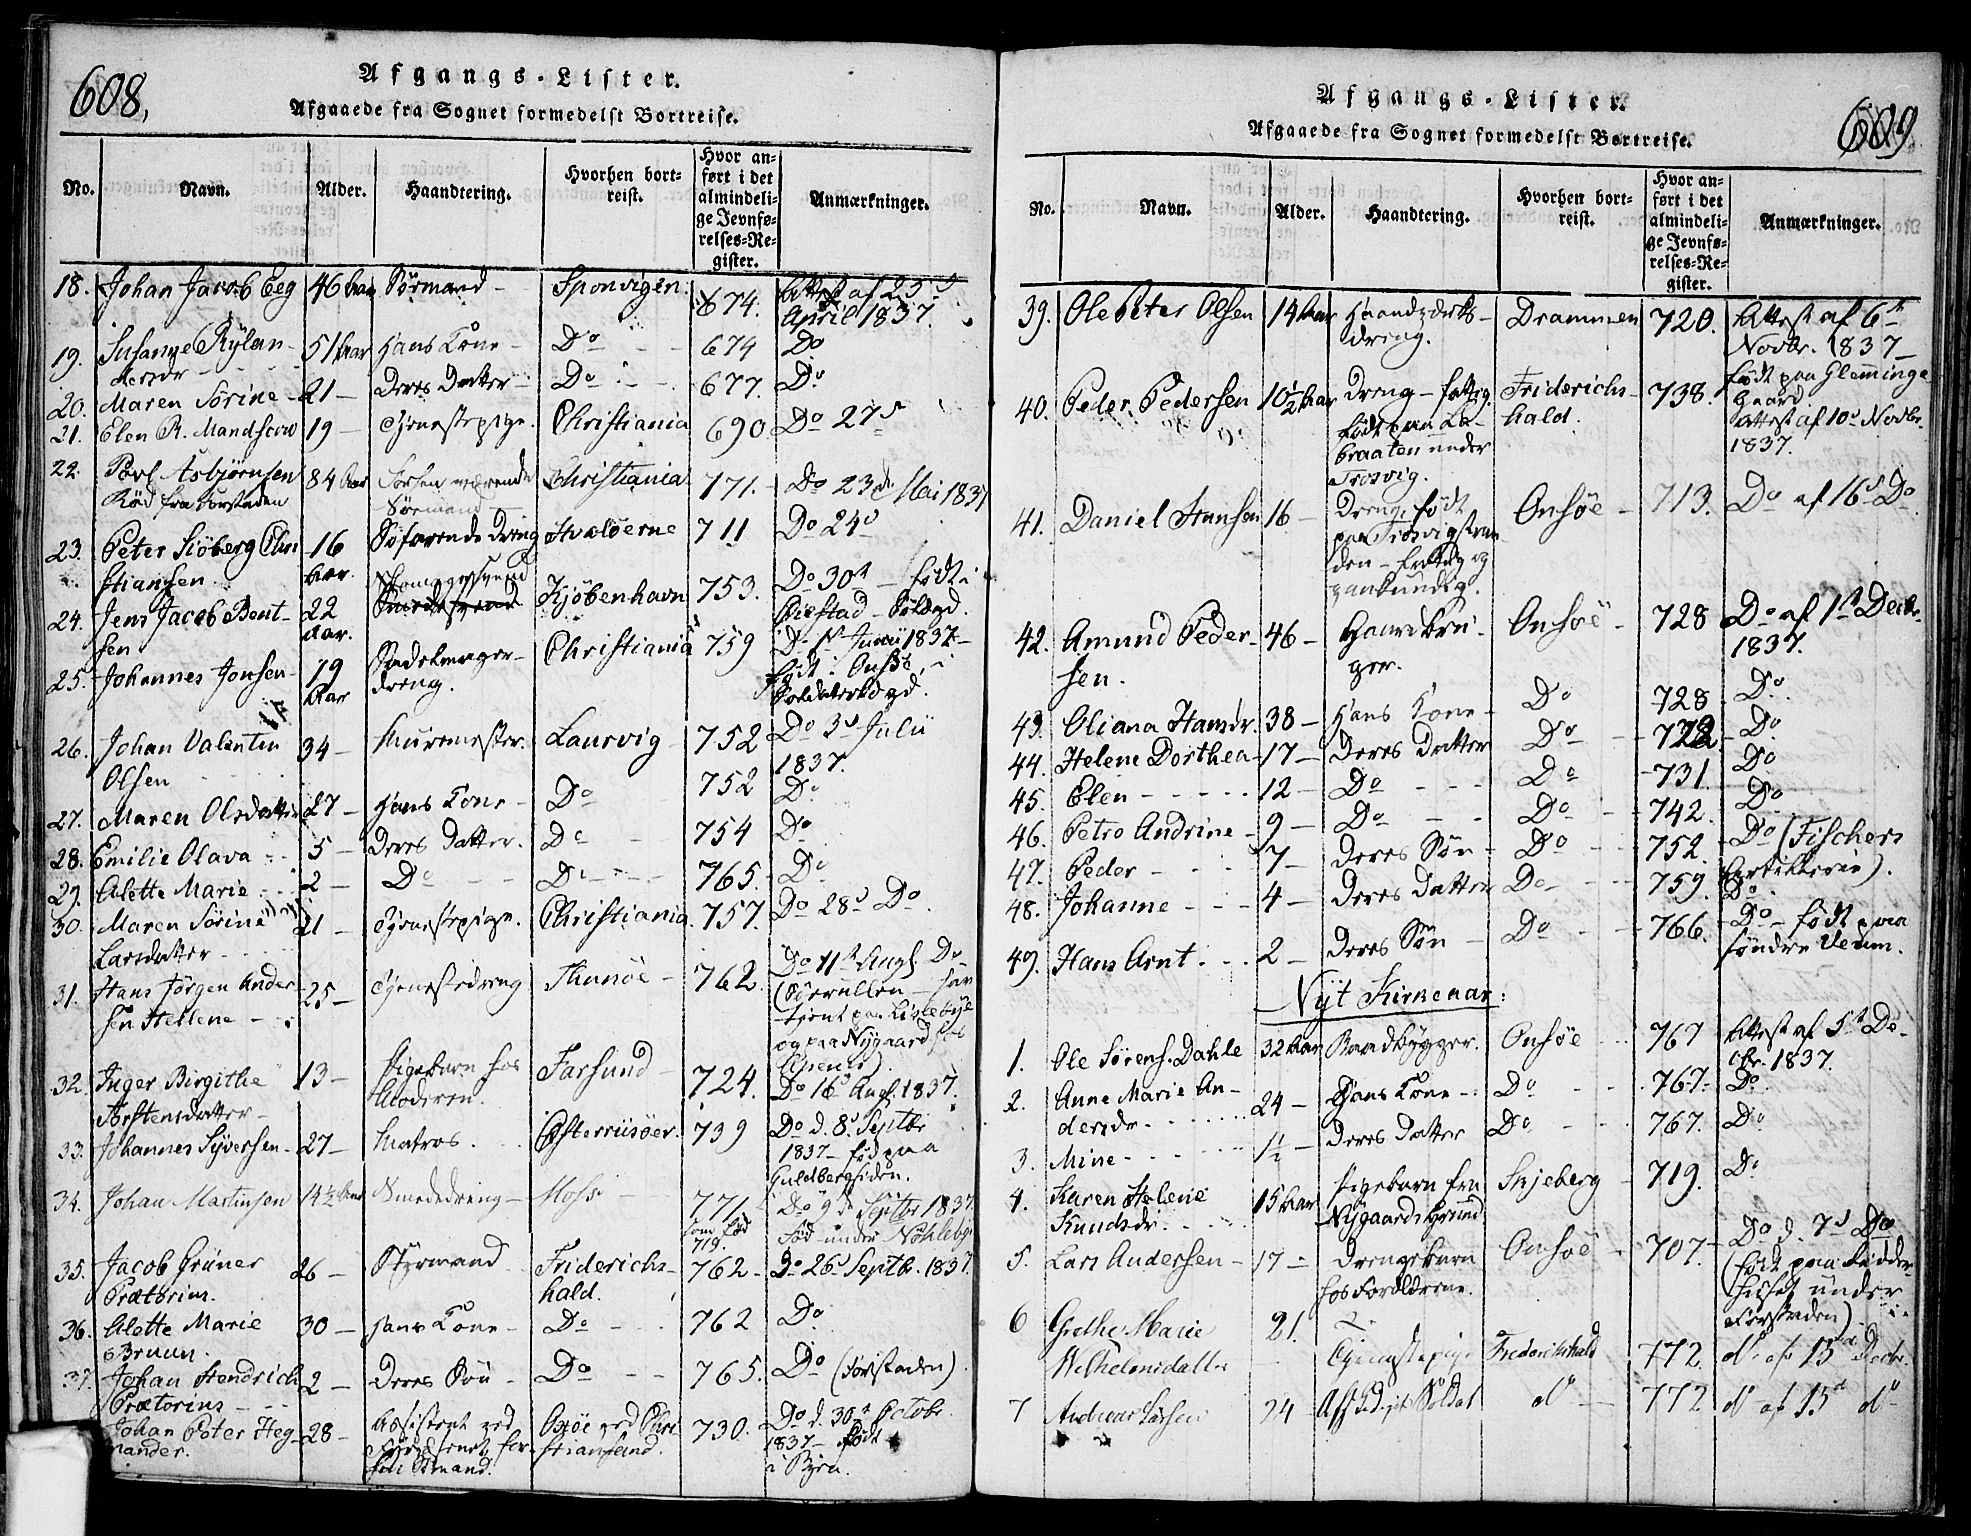 608.
Afgangs-Lister.
Afgaaede fra Sognet formedelst Bortreise.
No. Navn. Alder. Haandtering. Hvorhen bortreist. Hvor anført i det almindelige Jevnførelses-Register. Anmærkninger.
18. Johan Jacob Eeg 46 Aar Sørmand - Sponvigen. 674. Attest af 25d April 1837.
19. Susanne Rylandersdr 51 Aar Hans Kone - Do 674 Do
20. Maren Sørine - 21 - Deres Datter - Do 677. Do
21. Elen R. Mandscow 19 - Tjenestepige. Christiania 690 Do 27d
22. Povl Asbjørnsen Röd fra Forstaden 84 Aar Forhenværende Sørmand - Christiania 771. - Do 23d Mai 1837
23. Peter Siöberg Christiansen 16 Aar. Söfarende Dreng Hvaløerne 711 Do 24d
24. Jens Jacob Bentsen 22 Aar. Kjøbenhavn 753. Do 30t - født i
25. Johannes Jonsen 19 Aar Sadelmagerdreng. Christiania 759 Do 1t Junii 1837 - født i Onsø
26. Johan Valentin Olsen 34 - Muremester. Laurvig 752 Do 3d Julii 1837.
27. Maren Olsdatter 27 - Hans Kone - Do 752 Do
28. Emilie Olava 5 - Deres Datter. Do 754 Do
29. Alette Marie 2 - Do - - Do - - 765. Do
30. Maren Sørine Larsdatter 21 - Tjenestepige. Christiania 757. Do 28d Do
31. Hans Jørgen Andersen Hellene - 25 - Tjenestedreng Thunöe - 762. Do 11t Augt Do (Sørrullen - har tjent paa Lislebye og paa Nygaard hos
32. Inger Birgithe Torstensdatter - 13 - Pigebarn hos Moderen. Farsund - 724. Do 16d Augt. 1837.
33. Johannes Syversen - 27 - Matros. Østerriisøer. 739 Do d. 8d Septbr 1837 - fød paa Guldbergsiden.
34. Johan Martinsen 14½ Aar Smededreng - Moss - 771. som fød 719. Do 9d Septbr 1837. Fød under Nøhlebye
35. Jacob Grüner Prætorius. 26 - Styrmand - Friderichshald. 762 - Do 26d Septbr. 1837.
36. Alette Marie Bruun. 30 - Hans Kone - Do - - 762 Do
37. Johan Hendrich Prætorius - - 2 - Deres Søn - Do - - 765. Do (Forstaden).
Johan Peter Hegmander. 28 - Assistent ved 730. Do d. 30t Octobr. 1837 - født i Byen.
609
Afgangs-Lister.
Afgaaede fra Sognet formedelst Bortreise.
No. Navn. Alder. Haandtering. Hvorhen bortreist. Hvor anført i det almindelige Jevnførelses-Register. Anmærkninger.
39. Ole Peter Olsen 14 Aar Haandverksdreng. Drammen 720. Attest af 6te Novbr. 1837 -
40. Peder Pedersen 10½ Aar Dreng - fattig. født paa Labraaten under Trosvig. Friderichshald. 738. født paa Glemminge Gaard Attest af 10d Novbr. 1837.
41. Daniel Hansen 16 - Dreng, født paa Trosvigstranden - Onsøe - 713. Do af 16d Do
42. Amund Pedersen. 46 - Gaardbruger. Onsøe - 728 Do af 1t Decbr. 1837.
43. Oliana Hansdr. 38 - Hans Kone - Do 728 Do
44. Helene Dorthea 17 - Deres Datter Do - 722 - Do
45. Elen - - - - - 12 - Do - - - Do - 731. Do
46. Petro Andrine - 9 - Do - - Do - 742. Do
47. Peder - - - 7 - Deres Søn - Do - - 752. Do (Fischers
48. Johanne - - - 4 - Deres Datter Do - - 759. Do
49. Hans Arnt - - 2 - Deres Søn - Do - - 766. Do - født paa søndre Veum.
Nyt Kirkeaar:
1. Ole Sørens. Dahle 32 Aar Baadbygger. Onsøe 767 Attest af 5t Decbr. 1837.
2. Anne Marie Andersdr 24 - Hans Kone - Do - - 767. Do
3. Mine - - - - 1½ - Deres Datter Do - - 767. Do
4. Karen Helene Knudsdr. 15 Aar Pigebarn fra Nygaards Grund Skjeberg - 719. Do
5. Lars Andersen - 17 - Drengebarn hos Forældrene. Onsøe - 707. Do d. 7d Do (født paa Ridderhuset under Forstaden)
6 Grethe Marie Wilhelmsdatter 21. Tjenestepige Frederikshald 772. do af 13d Decbr.
7 Andreas Larsen 24 Do - 772 do af 13d do